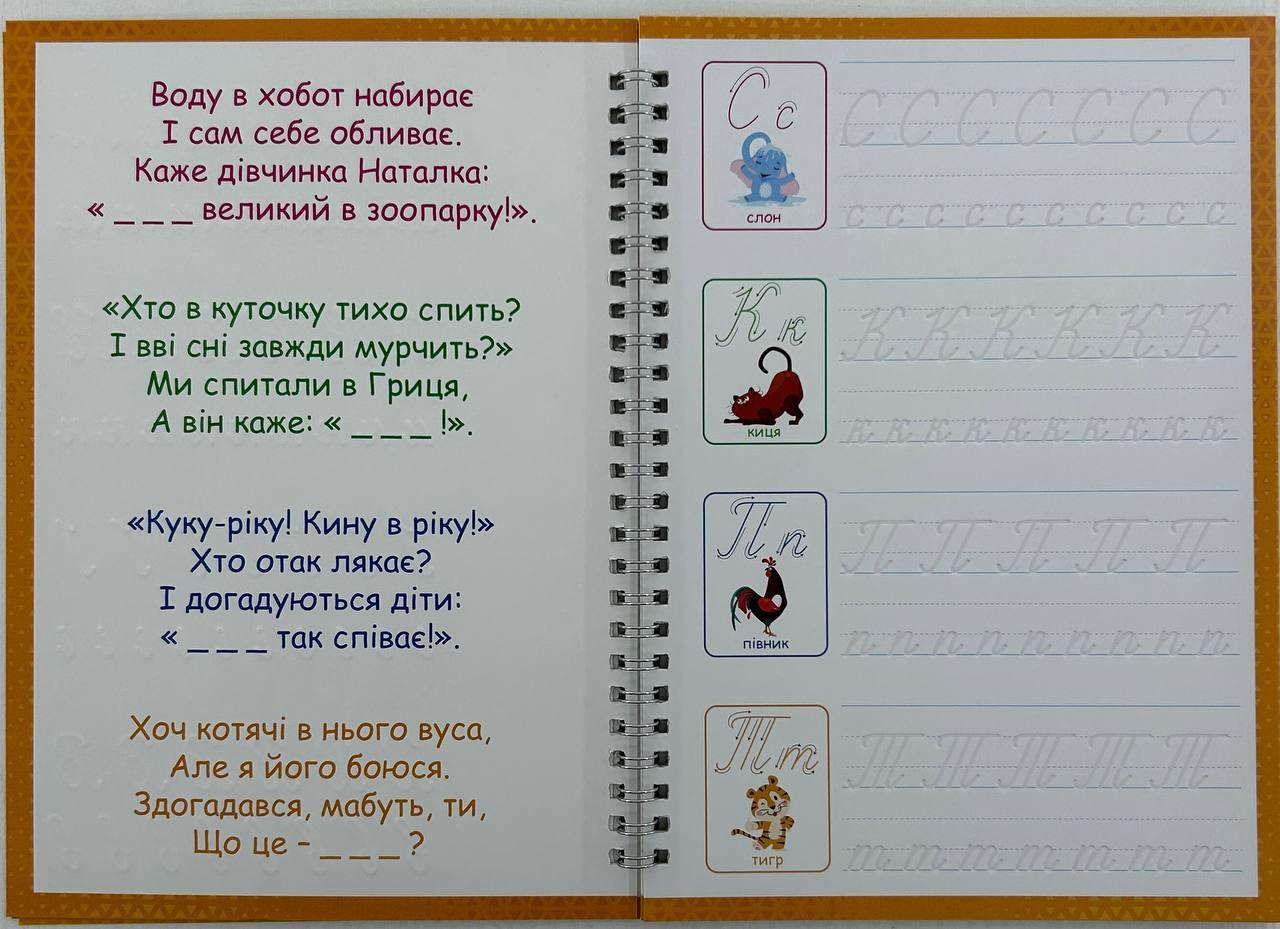 Воду в хобот набирає
І сам себе обливає.
Каже дівчинка Наталка:
« _ _ _ великий в зоопарку!».
«Хто в куточку тихо спить?
І вві сні завжди мурчить?»
Ми спитали в Гриця,
А він каже: « _ _ _ !».
«Куку-ріку! Кину в ріку!»
Хто отак лякає?
І догадуються діти:
« _ _ _ так співає!».
Хоч котячі в нього вуса,
Але я його боюся.
Здогадався, мабуть, ти,
Що це – _ _ _ ?
С с
слон
С С С С С С С
с с с с с с с с с с
К к
киця
К К К К К К
к к к к к к к к к к
П п
півник
П П П П П
п п п п п п п п п
Т т
тигр
Т Т Т Т Т
т т т т т т т